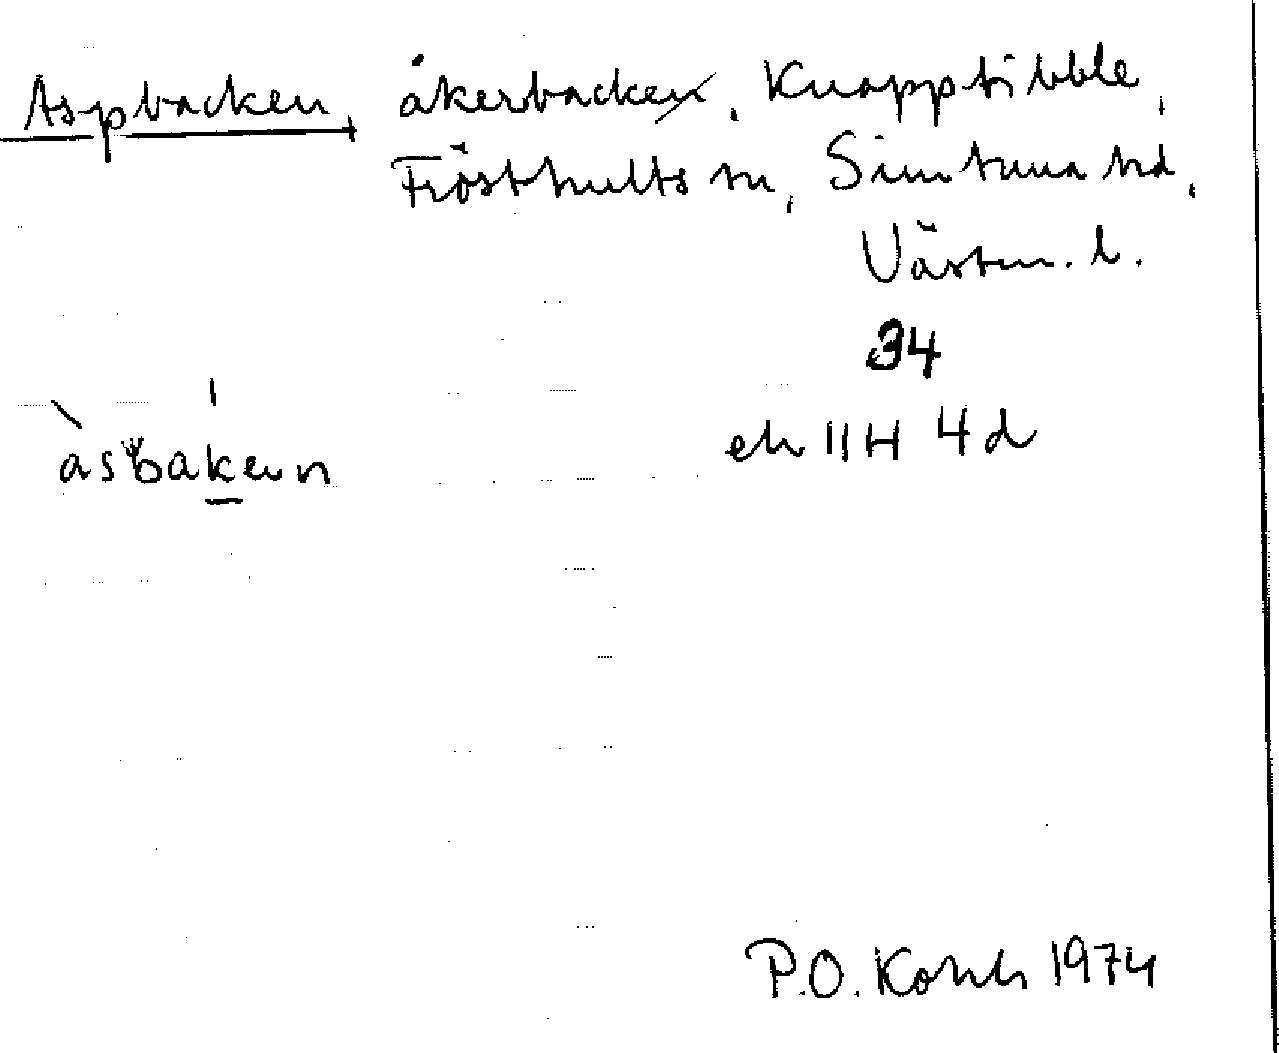 Aspbacken, åkerbacke, Knapptibble,
Frösthults sn, Simtuna hd,
Västm. l.
34
ek 11H 4d
P.O. 1974